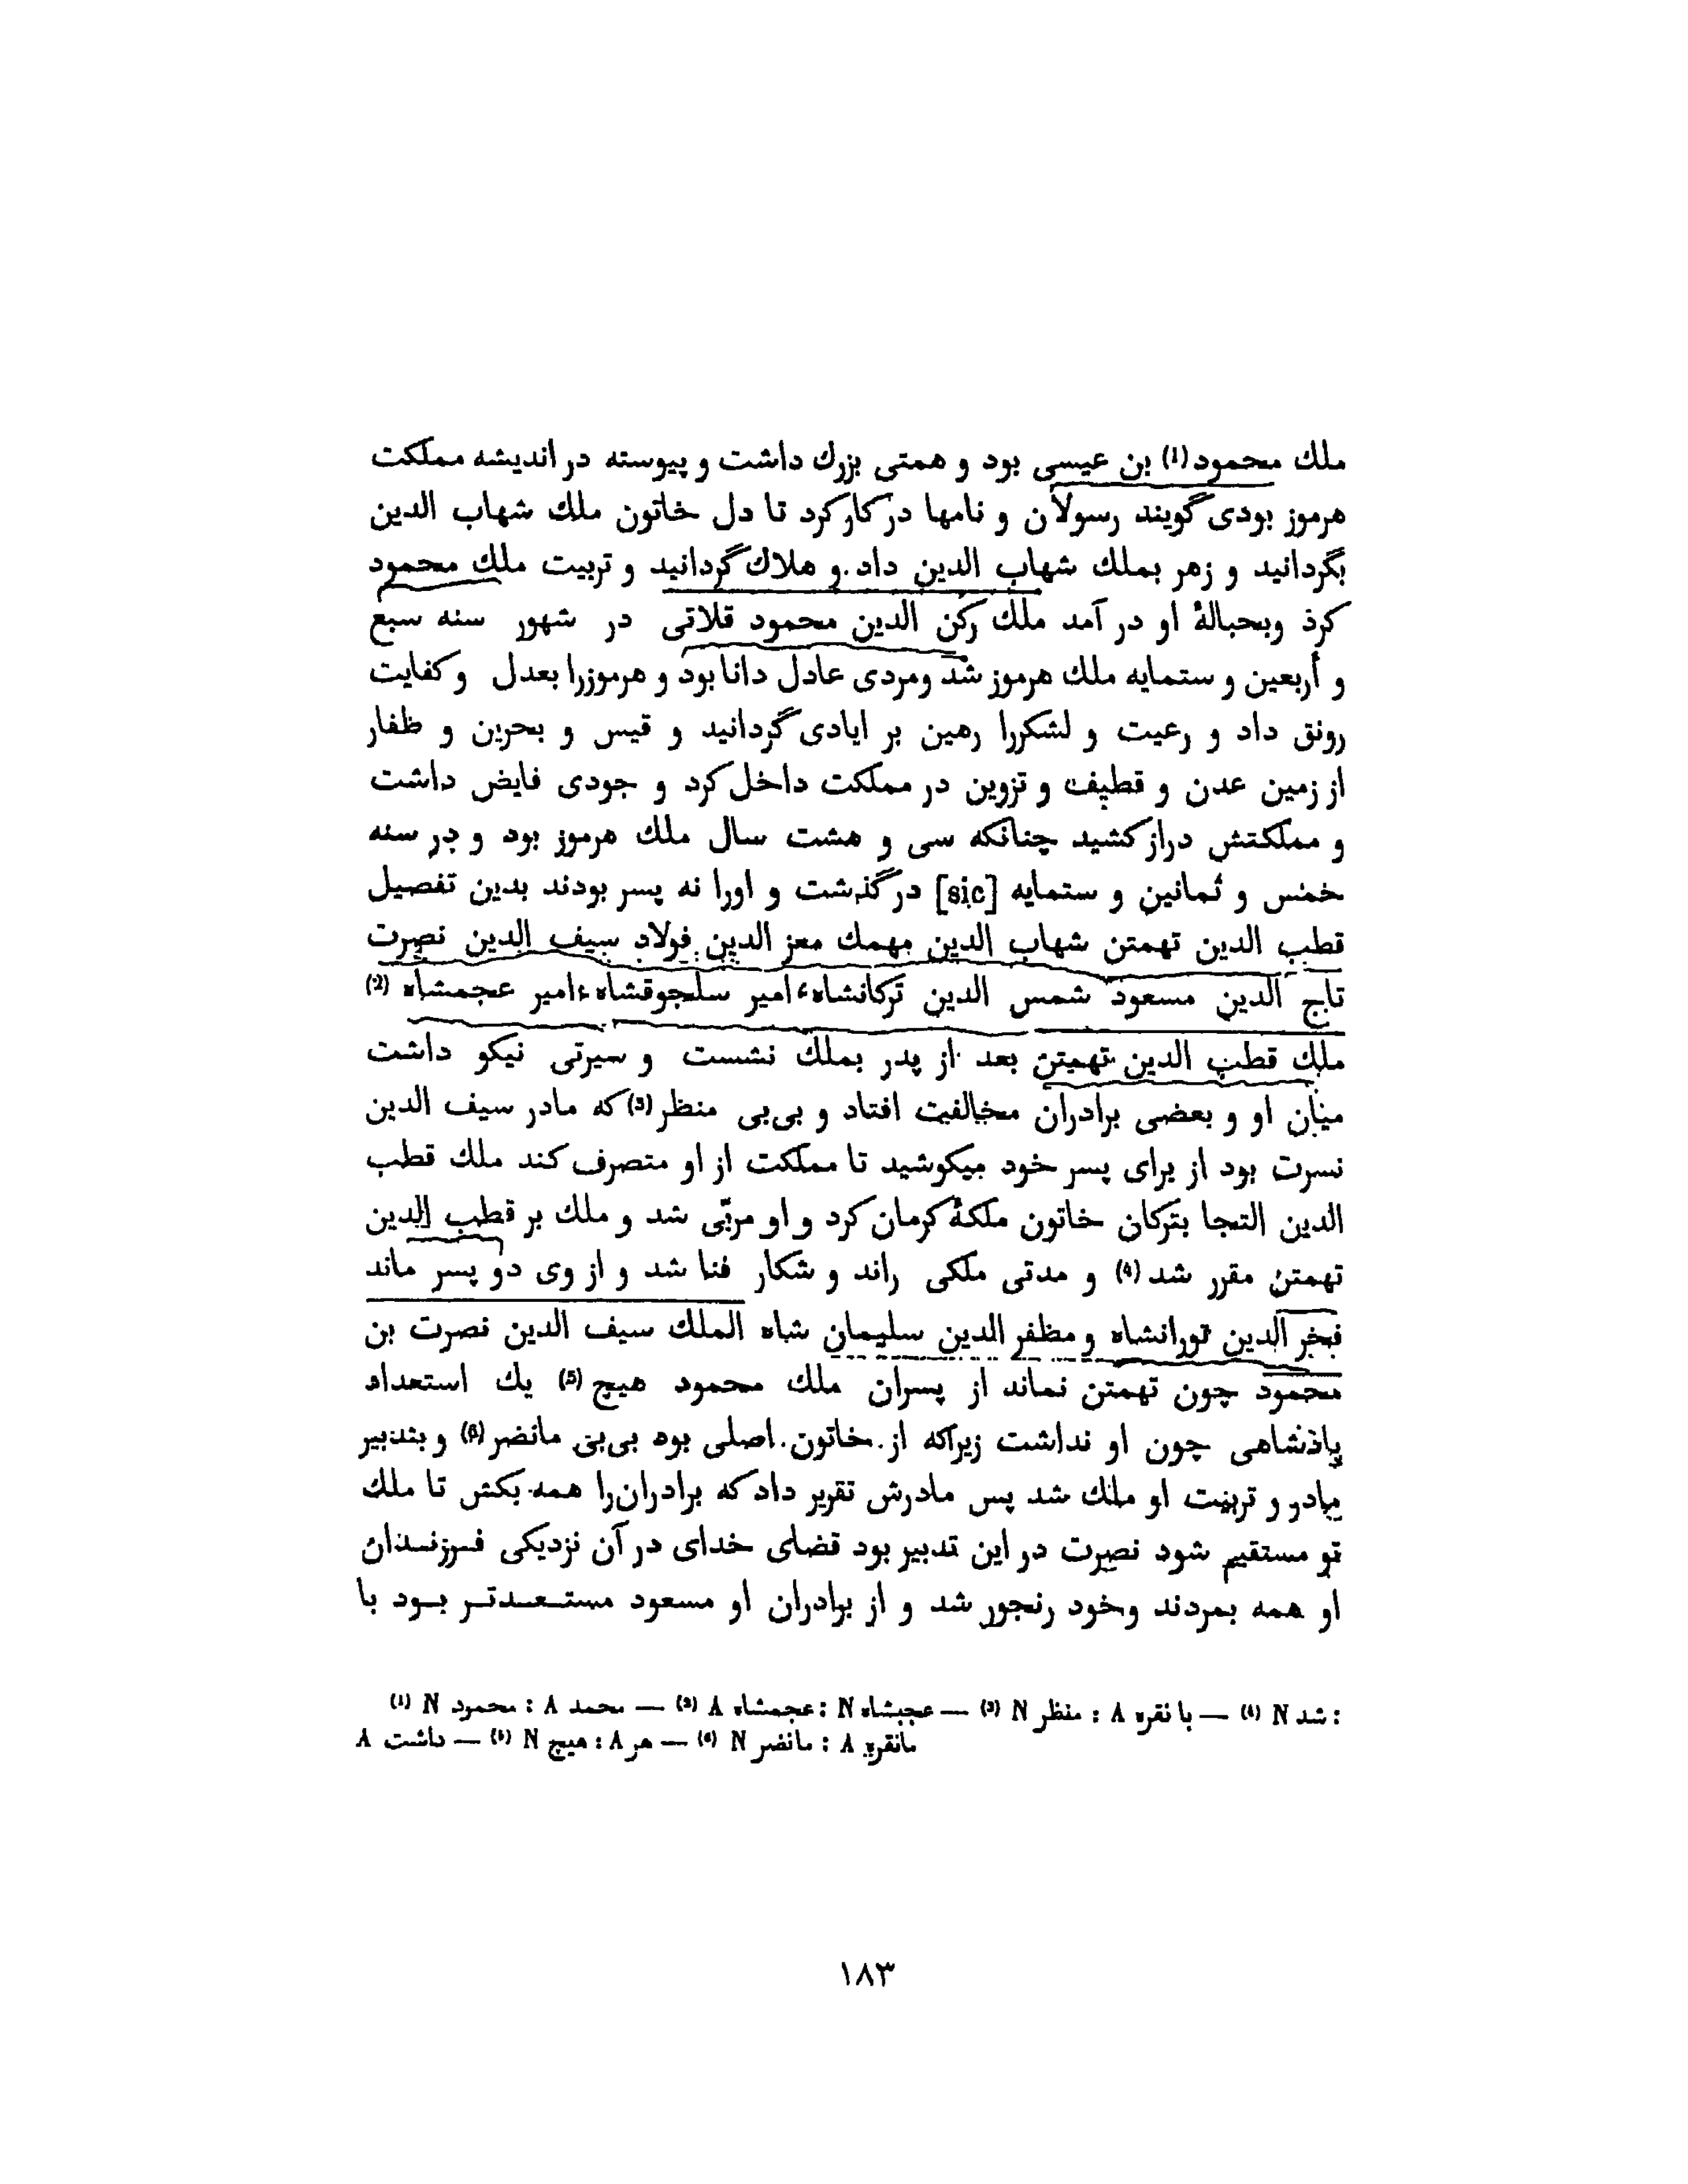 ملك محمود(1) بن عیسی بود و همتی بزرك داشت و پیوسته در اندیشه مملكت
هرموز بودی گویند رسولان و نامها در كار كرد تا دل خاتون ملك شهاب الدین
بگردانید و زهر بملك شهاب الدین داد و هلاك گردانید و تربیت ملك محمود
كرذ وبحبالۀ او در آمد ملك ركن الدین محمود قلاتی در شهور سنه سبع
و أربعین و ستمایه ملك هرموز شد ومردی عادل دانا بود و هرموزرا بعدل و كفایت
رونق داد و رعیت و لشكررا رهین بر ایادی گردانید و قیس و بحرین و ظفار
از زمین عدن و قطیف و تزوین در مملكت داخل كرد و جودی فایض داشت
و مملكتش دراز كشید چنانكه سی و هشت سال ملك هرموز بود و در سنه
خمس و ثمانین و ستمایه [sic] در گذشت و اورا نه پسر بودند بدین تفصیل
قطب الدین تهمتن شهاب الدین مهمك معز الدین فولاد سیف الدین نصرت
تاج الدین مسعود شمس الدین تركانشاه، امیر سلجوقشاه، امیر عجمشاه (2)
ملك قطب الدین تهمتن بعد از پدر بملك نشست و سیرتی نیكو داشت
میان او و بعضی برادران مخالفت افتاد و بی‌بی منظر(3) كه مادر سیف الدین
نسرت بود از برای پسر خود میكوشید تا مملكت از او متصرف كند ملك قطب
الدین التجا بتركان خاتون ملكۀ كرمان كرد و او مربّی شد و ملك بر قطب الدین
تهمتن مقرر شد (4) و مدتی ملكی راند و شكار فنا شد و از وی دو پسر ماند
فخر الدین تورانشاه و مظفر الدین سلیمان شاه الملك سیف الدین نصرت بن
محمود چون تهمتن نماند از پسران ملك محمود هیچ (5) یك استعداد
پاذشاهی چون او نداشت زیراكه از خاتون اصلی بوه بی‌بی مانضر(6) و بتدبیر
مادر و تربیت او ملك شد پس مادرش تقریر داد كه برادران‌را همه بكش تا ملك
تو مستقیم شود نصرت در این تدبیر بود قضای خدای در آن نزدیكی فرزندان
او همه بمردند وخود رنجور شد و از برادران او مسعود مستعدتر بود با
(1) N محمود : A محمد — (2) A عجمشاه : N عجبشاه — (3) N منظر : A با نقره — (4) N شد :
A داشت — (5) N هیچ : A هر — (6) N مانضر : A مانقره
۱۸۳